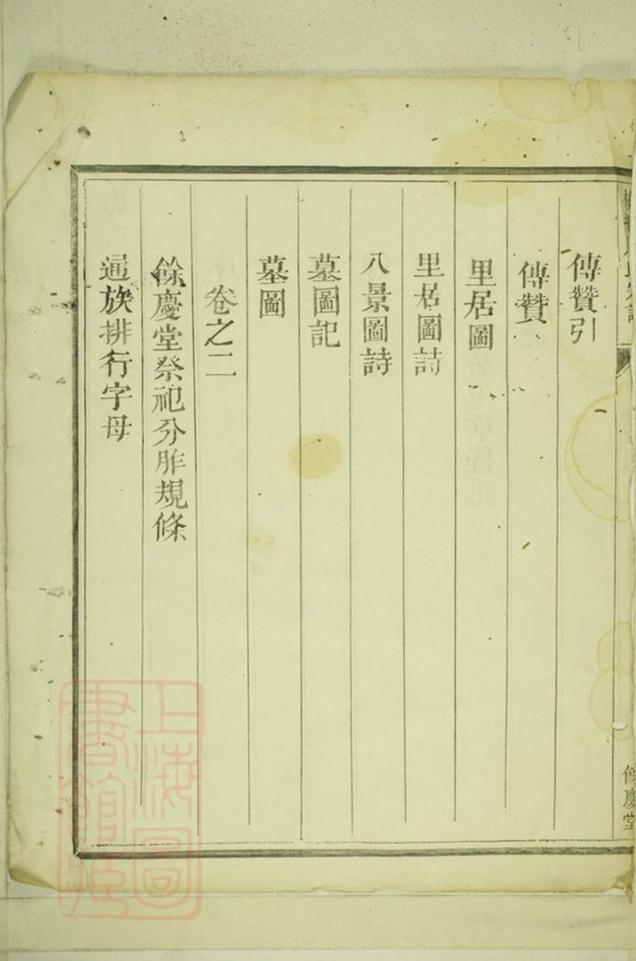 傳贊引
傳贊
里居圖
里居圖詩
八景圖詩
墓圖記
墓圖
卷之二
餘慶堂祭祀分胙規條
通族排行字母
餘慶堂
上海圖書館藏